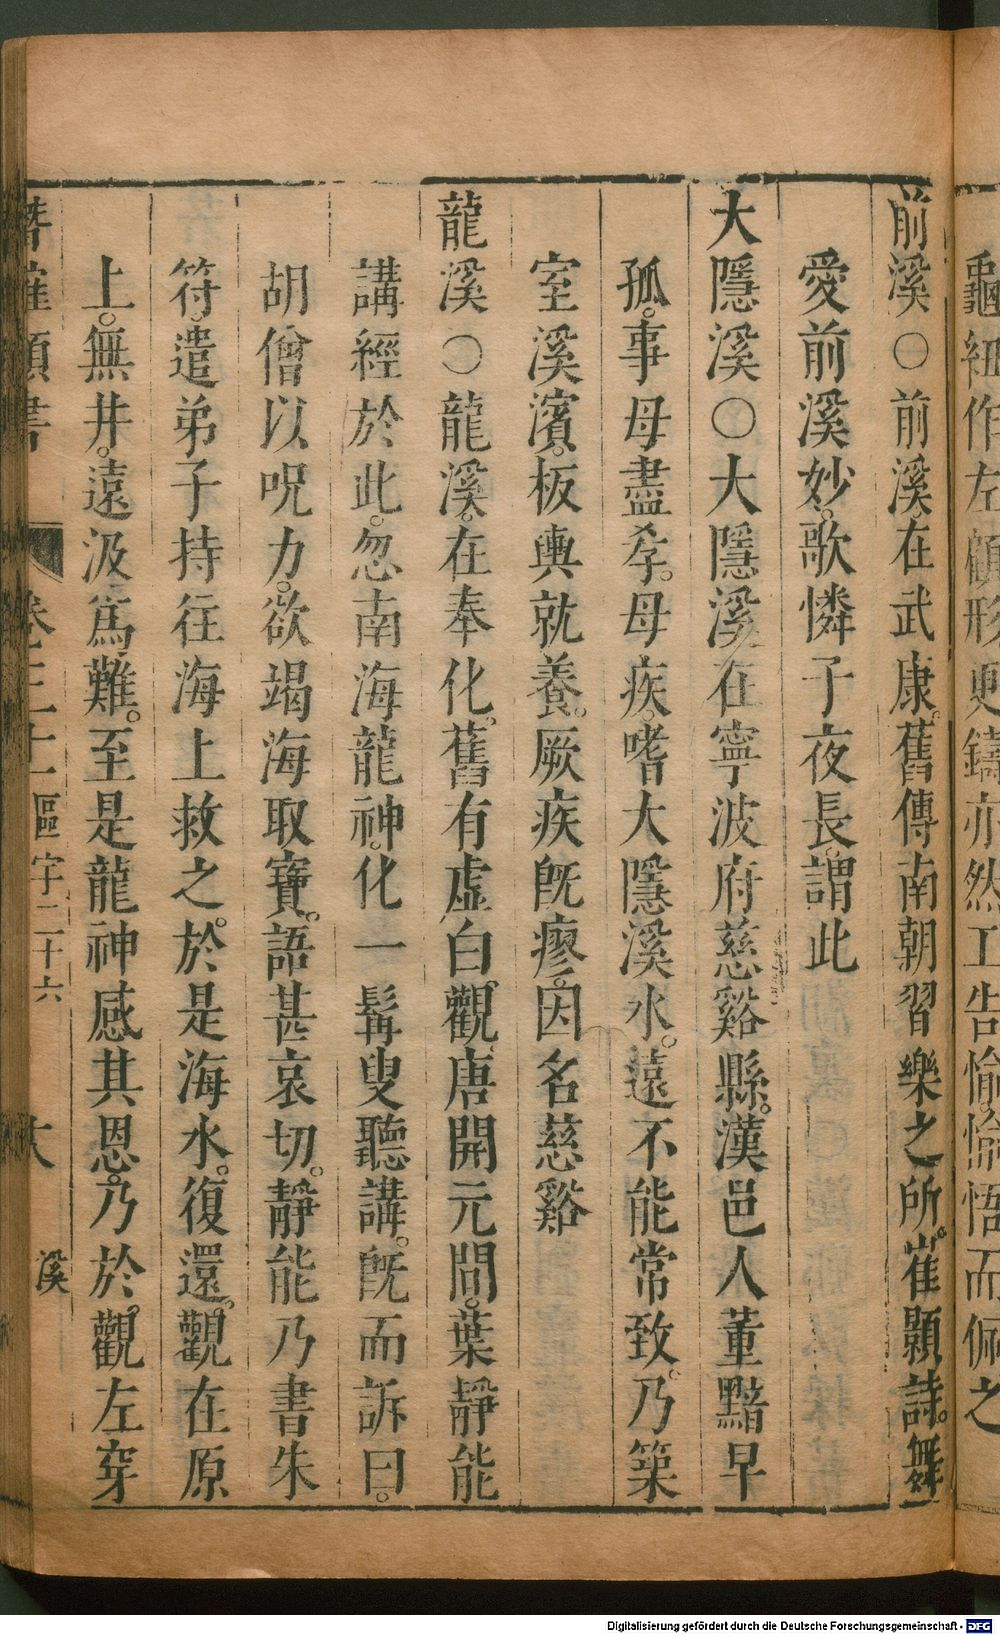 龜紐作左顧形更鑄亦然工告愉愉悟而佩之
前溪○前溪在武康舊傳南朝習樂之所崔顥詩舞
愛前溪妙歌憐子夜長謂此
大隱溪○大隱溪在寧波府慈谿縣漢邑人董黯早
孤事母盡孝母疾嗜大隱溪水遠不能常致乃築
室溪濱板輿就養厥疾旣瘳因名慈谿
龍溪○龍溪在奉化舊有虛白觀唐開元間葉靜能
講經於此忽南海龍神化一髯叟聽講旣而訴曰
胡僧以呪力欲竭海取寶語甚哀切靜能乃書朱
符遣弟子持往海上救之於是海水復還觀在原
上無井遠汲爲難至是龍神感其恩乃於觀左穿
卷三十一 區字二十六 大 溪
Digitalisierung gefördert durch die Deutsche Forschungsgemeinschaft - DFG